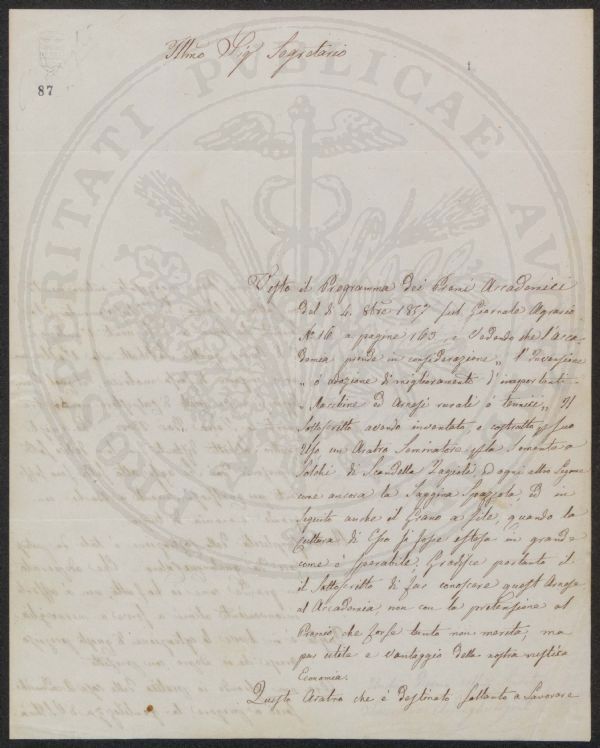 Illmo Sig. Segretario
87
Visto il Programma dei Premi Accademici
del dì 4. 8bre 1857 sul Giornale Agrario
N. 16 a pagine 163, e vedendo che l'Acca-
demia prende in considerazione „ l'Invenzione
„ o adozione di miglioramenti d'importanti
„ Macchine ed Arnesi rurali o tecnici „ Il
Sottoscritto avendo inventato, e costruito, suo
Uso un Aratro Seminatore per la Sementa a
Solchi di Scandella Fagioli, d'ogni altro Legume
come ancora la Saggina Spazzola, ed in
seguito anche il Grano a file, quando la
Cultura di Esso si fosse estesa in grande
come è sperabile. Gradisce pertanto il
il Sottoscritto di far conoscere quest Arnese
al Accademia non con la pretensione al
Premio, che forse tanto non merita; ma
per utile e vantaggio della nostra rustica
Economia.
Questo Aratro che è destinato soltanto a Lavorare
PROSPERITATI PUBLICAE AUGENDAE